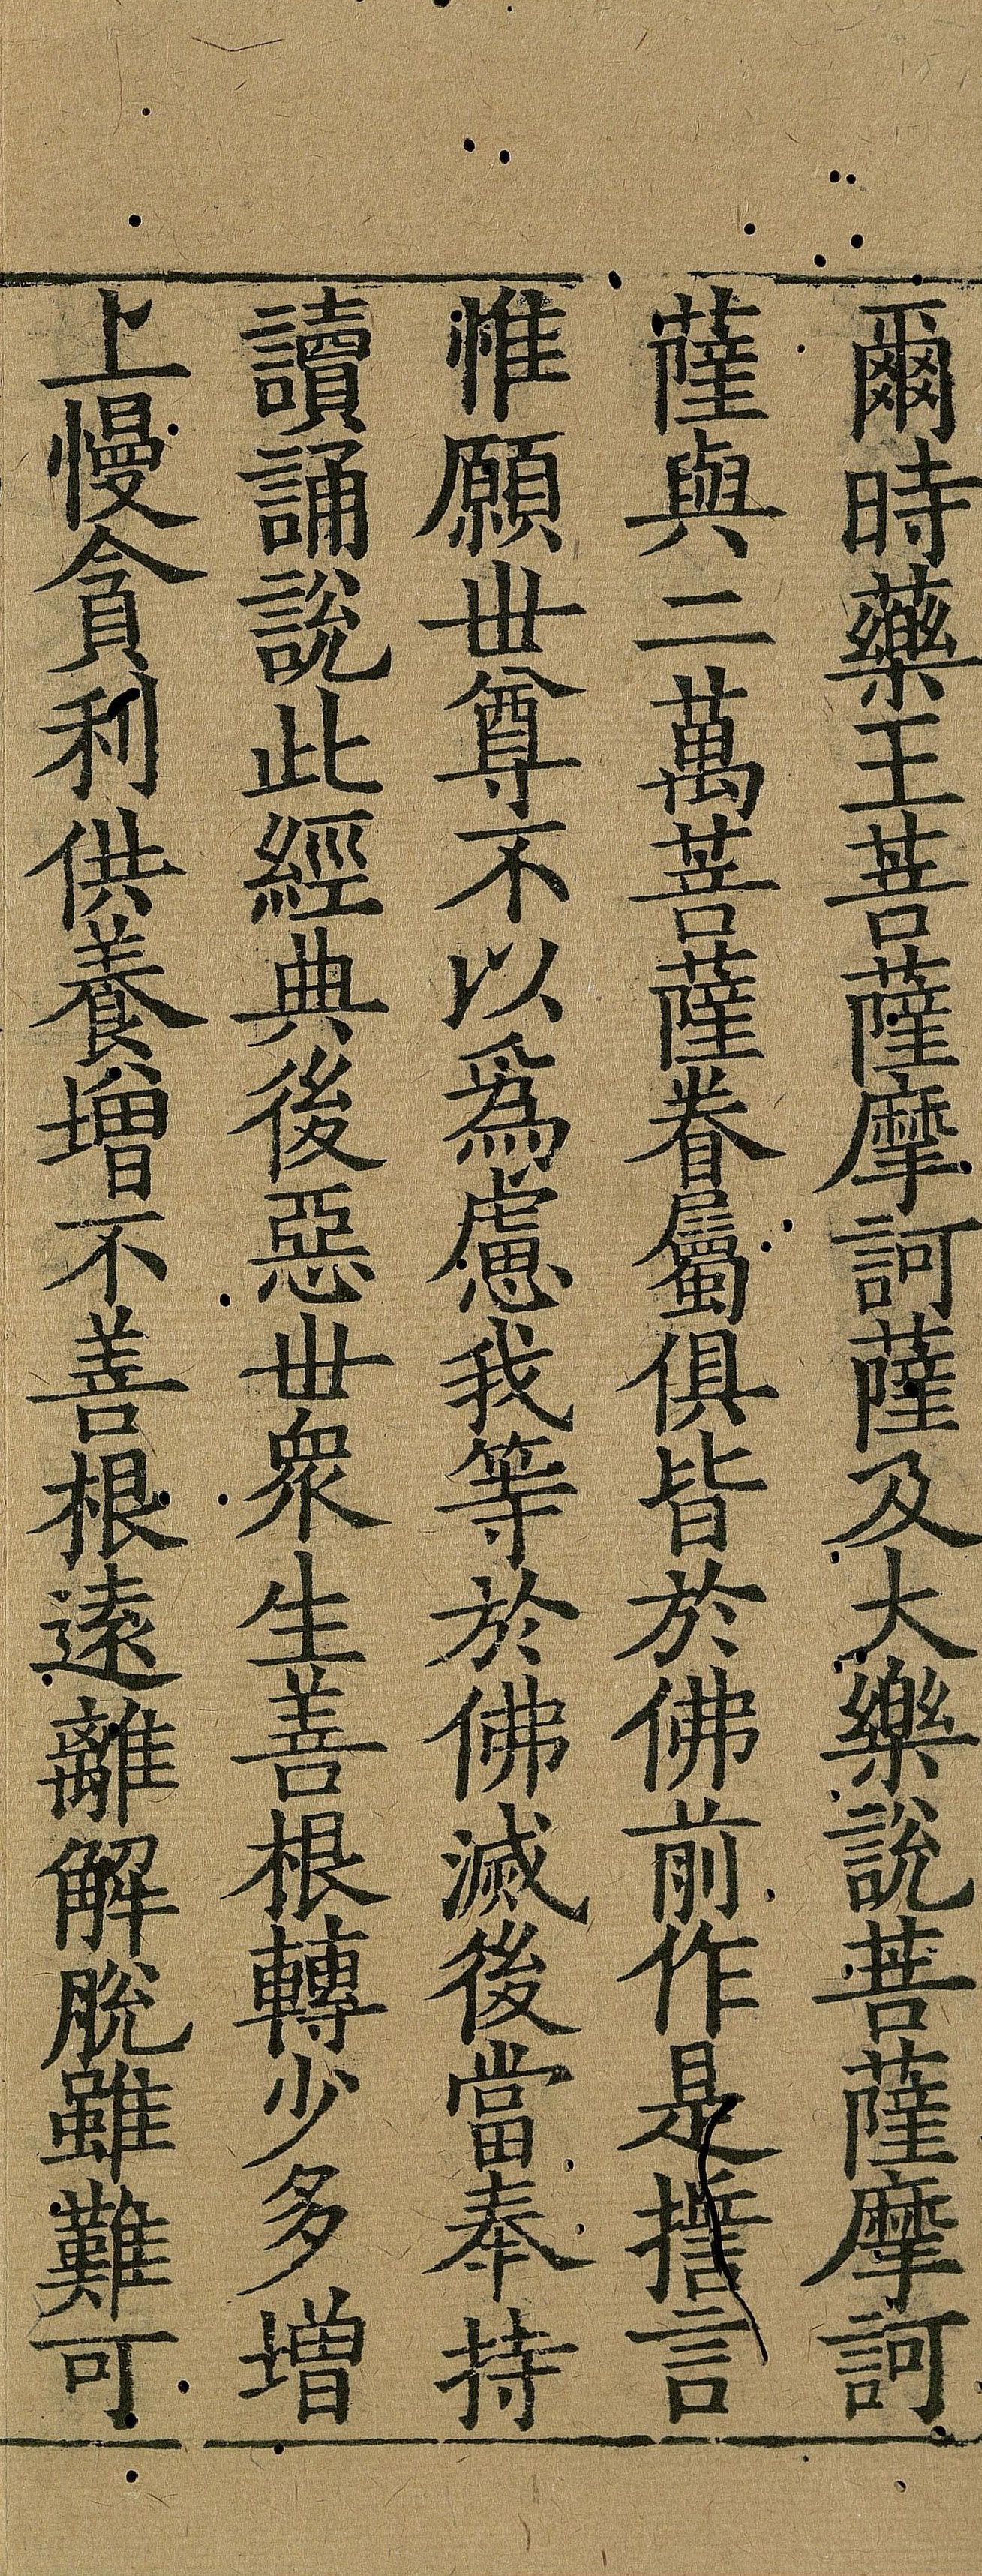 爾時藥王菩薩摩訶薩及大樂說菩薩摩訶
薩與二萬菩薩眷屬俱皆於佛前作是誓言
惟願世尊不以為慮我等於佛滅後當奉持
讀誦說此經典後惡世眾生善根轉少多增
上慢貪利供養增不善根遠離解脫雖難可